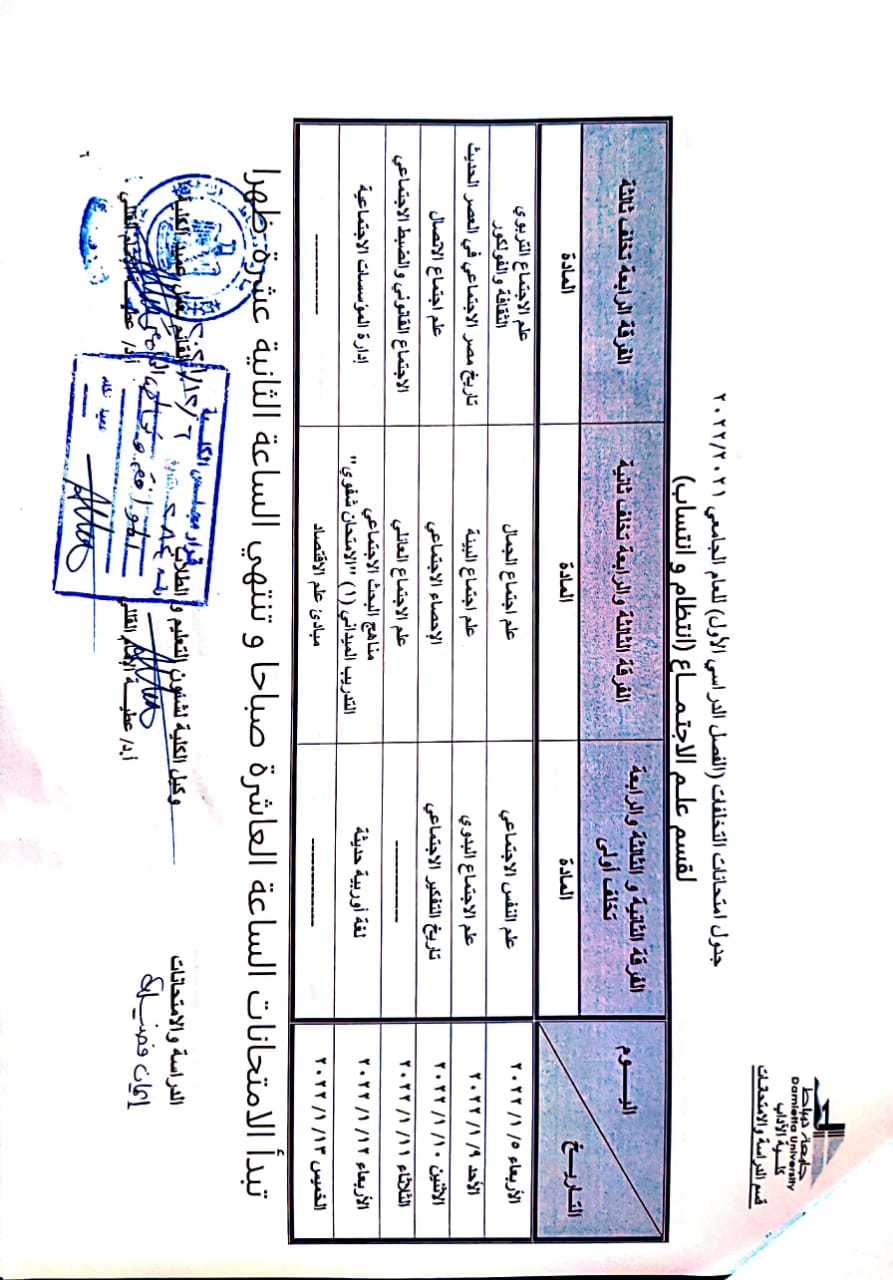 جامعة دمياط
Damietta University
كلية الآداب
قسم الدراسة والامتحانات
جدول امتحانات التخلفات (الفصل الدراسي الأول) للعام الجامعي ٢٠٢٢/٢٠٢١
لقسم علم الاجتماع (انتظام و انتساب)
اليوم
التاريخ
الفرقة الثانية و الثالثة والرابعة
تخلف أولى
الفرقة الثالثة والرابعة تخلف ثانية
الفرقة الرابعة تخلف ثالثة
المادة
المادة
المادة
الأربعاء ٥ /١ /٢٠٢٢
علم النفس الاجتماعي
علم اجتماع الجمال
علم الاجتماع التربوي
الثقافة والفولكلور
الأحد ٩ /١ /٢٠٢٢
علم الاجتماع البدوي
علم اجتماع البيئة
تاريخ مصر الاجتماعي في العصر الحديث
الاثنين ١٠ /١ /٢٠٢٢
تاريخ التفكير الاجتماعي
الإحصاء الاجتماعي
علم اجتماع الاتصال
الثلاثاء ١١ /١ /٢٠٢٢
----------
علم الاجتماع العائلي
الاجتماع القانوني والضبط الاجتماعي
الأربعاء ١٢ /١ /٢٠٢٢
لغة أوربية حديثة
مناهج البحث الاجتماعي
التدريب الميداني (١) "الامتحان شفوي"
إدارة المؤسسات الاجتماعية
الخميس ١٣ /١ /٢٠٢٢
----------
مبادئ علم الاقتصاد
----------
تبدأ الامتحانات الساعة العاشرة صباحا و تنتهي الساعة الثانية عشرة ظهرا
الدراسة والامتحانات
وكيل الكلية لشئون التعليم والطلاب
القائم بعمل عميد الكلية
قرار مجلس الكلية